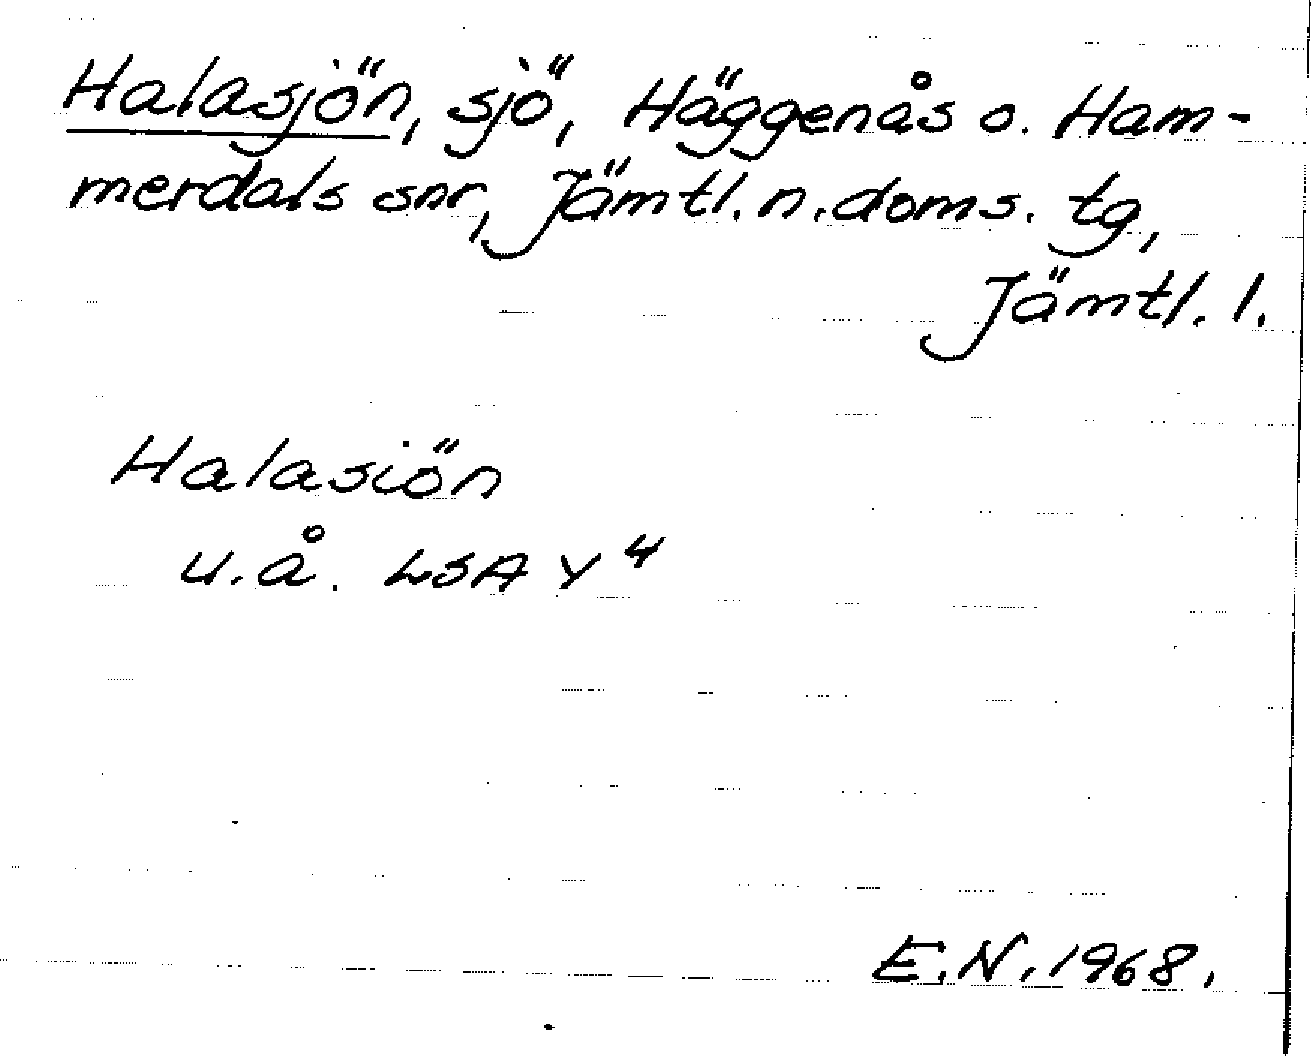 Halasjön, sjö, Häggenås o. Ham-
merdals snr, Jämtl. n. doms. tg,
Jämtl. l.
Halasiön
u.å. LSA Y⁴
E.N. 1968.